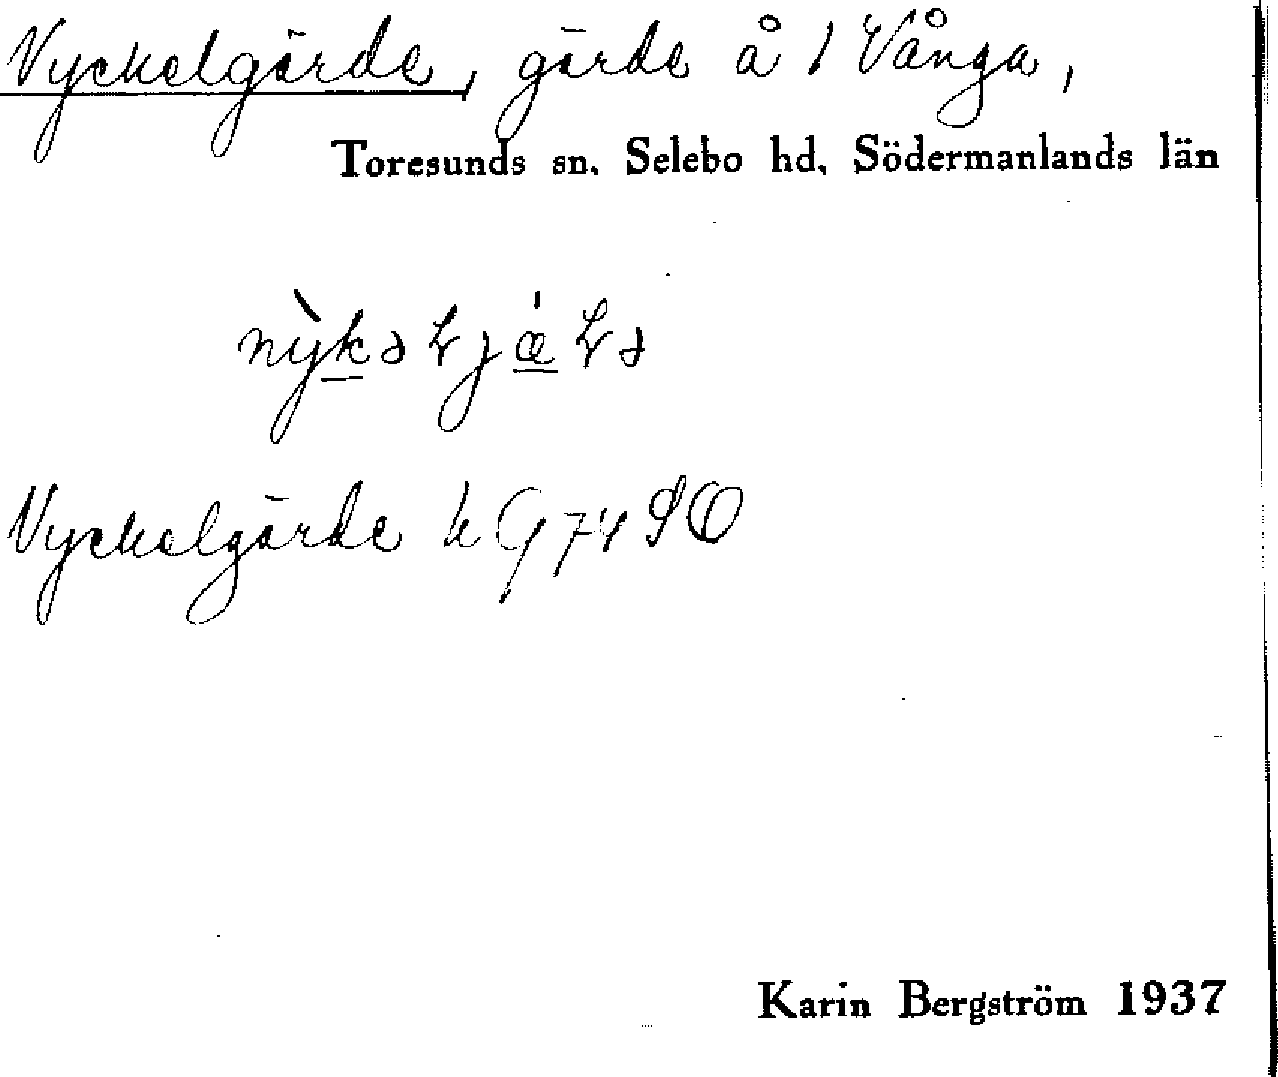 Nyckelgärde, gärde å 1 Vånga,
Toresunds sn. Selebo hd, Södermanlands län
Nyckelgärde k G 74 SO
Karin Bergström 1937